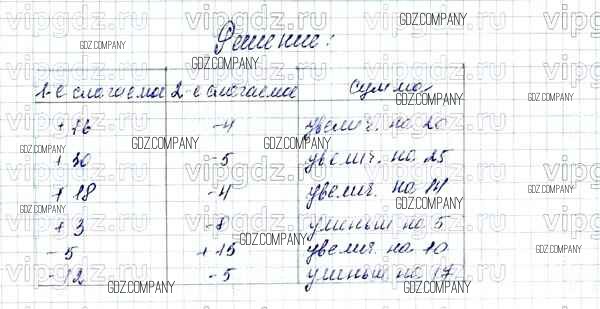 Решение:
1-е слагаемое 2-е слагаемое сумма
+16 -4 увелич. на 20
+30 -5 увелич. на 25
+18 -4 увелич. на 14
+3 -8 уменьш на 5
-5 +15 увелич. на 10
-12 -5 уменьш на 17
vipgdz.ru
GDZ.COMPANY